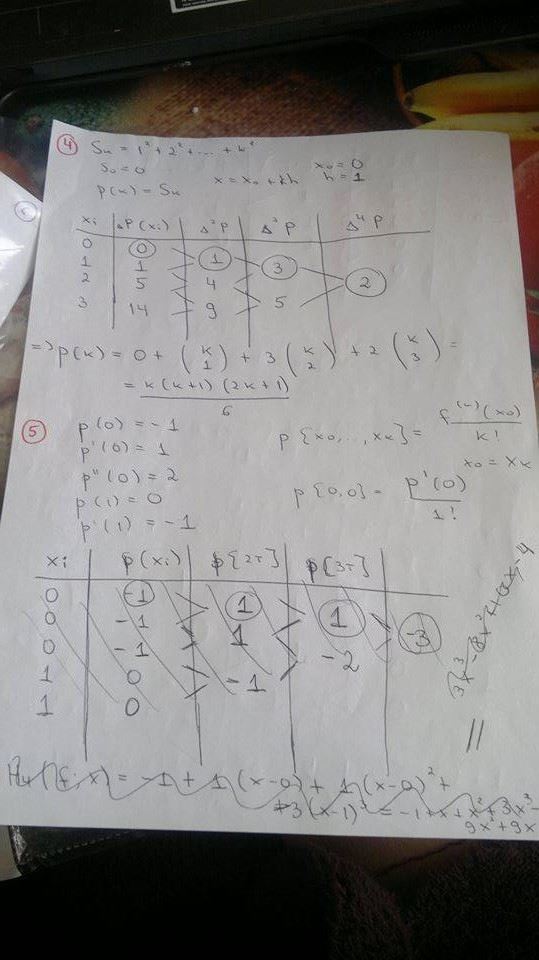 ④ Sₖ = 1² + 2² + ... + k²
S₀ = 0
x = x₀ + kh
x₀ = 0
h = 1
p(k) = Sₖ
xi | ΔP(xi) | Δ²P | Δ³P | Δ⁴P
0 | 0 | 1 | 3 | 2
1 | 1 | 4 | 5
2 | 5 | 9
3 | 14
=> p(k) = 0 + (k 1) + 3 (k 2) + 2 (k 3) =
= k(k+1)(2k+1) / 6
⑤ p(0) = -1
p'(0) = 1
p''(0) = 2
p(1) = 0
p'(1) = -1
p{x₀,..,xₖ} = f⁽ᵏ⁾(x₀) / k!
x₀ = xₖ
p{0,0} = p'(0) / 1!
xi | p(xi) | p[2T] | p[3T]
0 | -1 | 1 | 1 | -3
0 | -1 | 1 | -2
0 | -1 | -1
1 | 0
1 | 0
H₄(f; x) = -1 + 1(x-0) + 1(x-0)² +
+3(x-1)³ = -1+x+x²+3x³-
9x²+9x